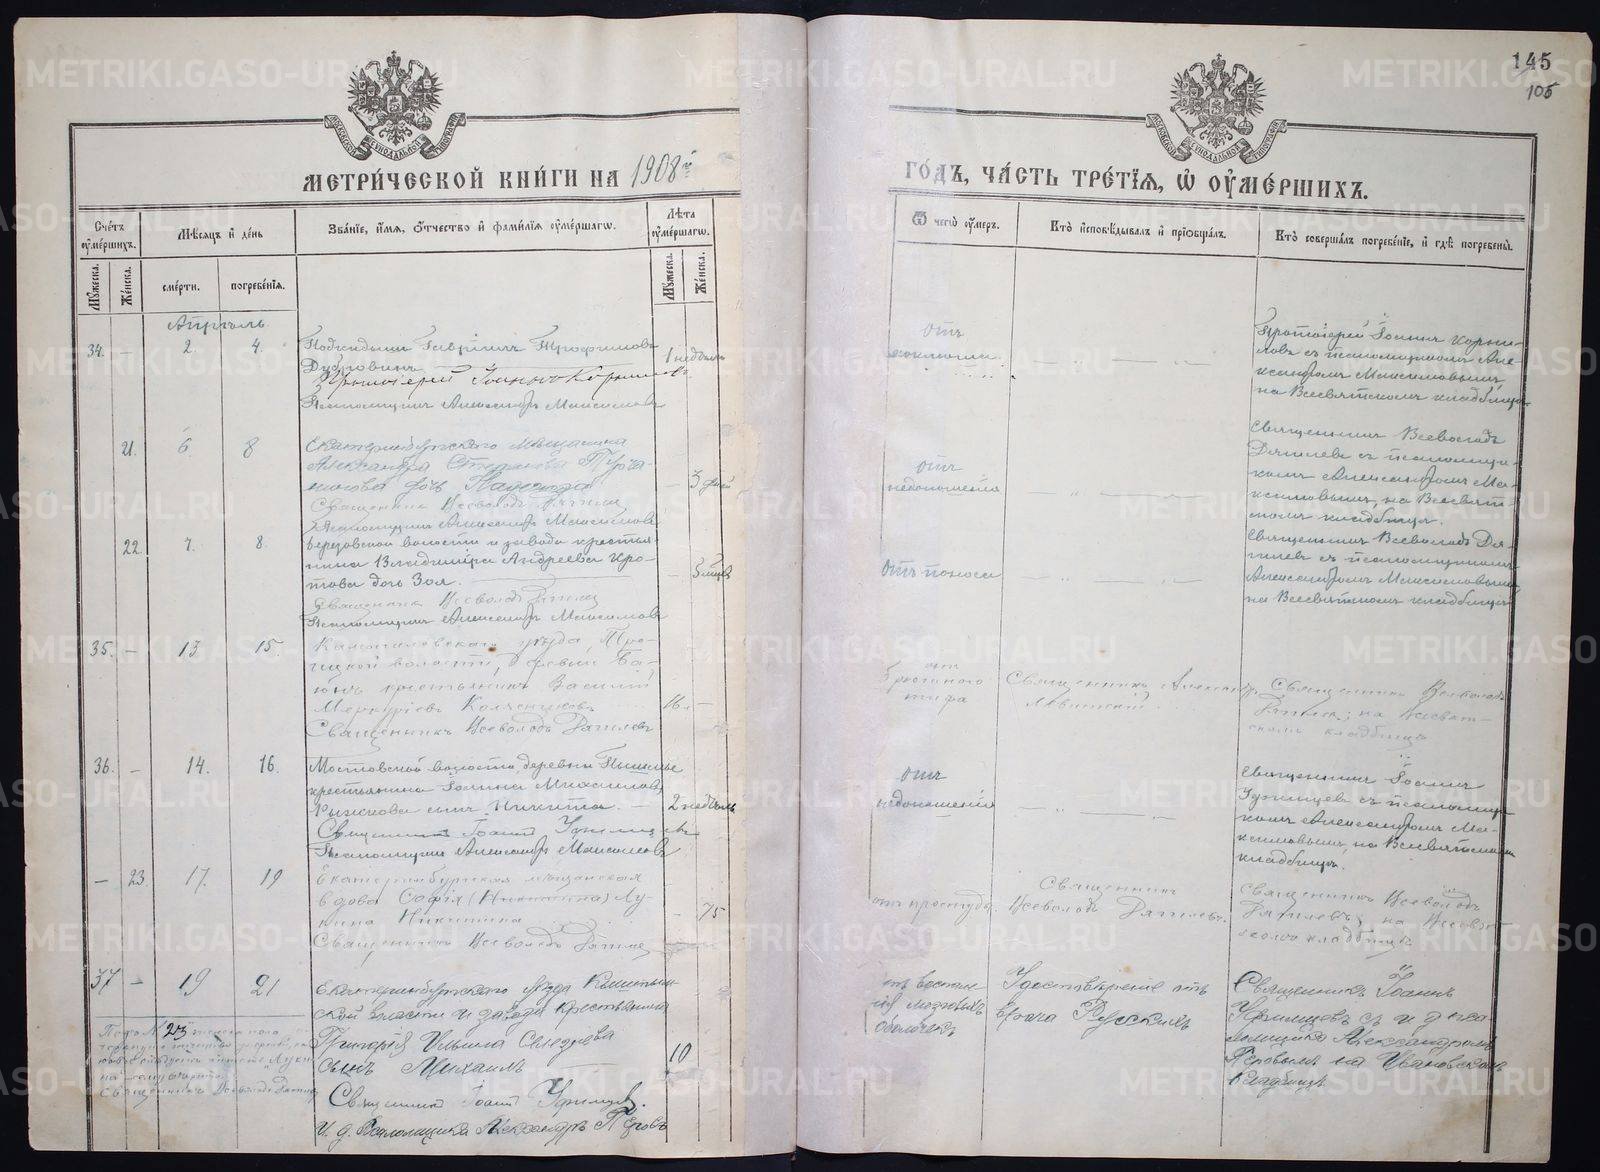 145
105
МЕТРИ́ЧЕСКОЙ КНИ́ГИ НА 1908й
ГО́ДЪ, ЧА́СТЬ ТРЕ́ТІѦ, Ѡ ОУ҆МЕ́РШИХЪ.
Сче́тъ оу҆ме́ршихъ.
Мѣ́сяцъ и҆ де́нь
Зва́ніе, и҆́мѧ, ѻ҆́тчество и҆ фами́лїѧ оу҆ме́ршагѡ.
Лѣ́та оу҆ме́ршагѡ.
Ѿ чегѡ̀ оу҆́меръ.
Кто̀ и҆сповѣ́дывалъ и҆ прїобща́лъ.
Кто̀ соверша́лъ погребе́нїе, и҆ гдѣ̀ погребены̀.
Мꙋ́жеска.
Же́нска.
сме́рти.
погребе́нїѧ.
Мꙋ́жеска.
Же́нска.
Апрѣль.
34. – 2. 4.
Подкидышъ Гавріилъ Трофимовъ
Дубровинъ
Протоіерей Іоаннъ Корнилов
Псаломщикъ Александръ Максимовъ
1 недѣль
отъ
Протоіерей Іоаннъ Корни-
ловъ съ псаломщикомъ Але-
ксандромъ Максимовымъ
на Всесвятскомъ кладбищѣ
21. 6 8
Екатеринбургскаго мѣщанина
Александра Степанова
дочь
Священникъ Всеволодъ Дягилев
Псаломщикъ Александръ Максимовъ
3 дней
отъ
недоношенія
Священникъ Всеволодъ
Дягилевъ съ псаломщи-
комъ Александромъ Ма-
ксимовымъ, на Всесвят-
скомъ кладбищѣ.
22. 7. 8.
Березовской волости и завода крестья-
нина Владиміра Андреева Кро-
това дочь Зоя.
Священникъ Всеволодъ Дягилев
Псаломщикъ Александръ Максимовъ
3 мѣсяц
отъ поноса
Священникъ Всеволодъ Дя-
гилевъ съ псаломщикомъ
Александромъ Максимовымъ
на Всесвятскомъ кладбищѣ
35. – 13 15.
Камышловскаго уѣзда, Тро-
ицкой волости, деревни
крестьянинъ Василій
Меркурьевъ
Священникъ Всеволодъ Дягилевъ
16 л –
отъ
брюшного
тифа
Священникъ Александръ
Священникъ Всеволодъ
Дягилевъ; на Всесвят-
скомъ кладбищѣ
36. – 14. 16.
Мостовской волости, деревни
крестьянина Іоанна
Рыжкова сынъ Никита.
Священникъ Іоаннъ Уфимцевъ
Псаломщикъ Александръ Максимовъ
2 недѣль
отъ
недоношенія
Священникъ Іоаннъ
Уфимцевъ съ псаломщи-
комъ Александромъ Ма-
ксимовымъ, на Всесвятскомъ
кладбищѣ.
– 23 17. 19
Екатеринбургская мѣщанская
вдова Софія (Никитина) Лу-
кина Никитина
Священникъ Всеволодъ Дягилев
– 75
отъ простуды.
Священникъ
Всеволодъ Дягилевъ.
Священникъ Всеволодъ
Дягилевъ на Всесвят-
скомъ кладбищѣ
37 – 19 21
Екатеринбургскаго уѣзда Кыштым-
ской волости и завода крестьянина
Григорія Ильина Селезнева
сынъ Михаилъ
Священникъ Іоаннъ Уфимцев.
И. д. Псаломщика Александръ Перовъ
10
отъ воспале-
нія мозговыхъ
оболочекъ
Удостовѣреніе отъ
врача Русскихъ
Священникъ Іоаннъ
Уфимцевъ съ и. д. пса-
ломщика Александромъ
Перовымъ на Ивановскомъ
кладбищѣ
Подъ № 23
Священникъ Всеволодъ Дягилев
METRIKI.GASO-URAL.RU